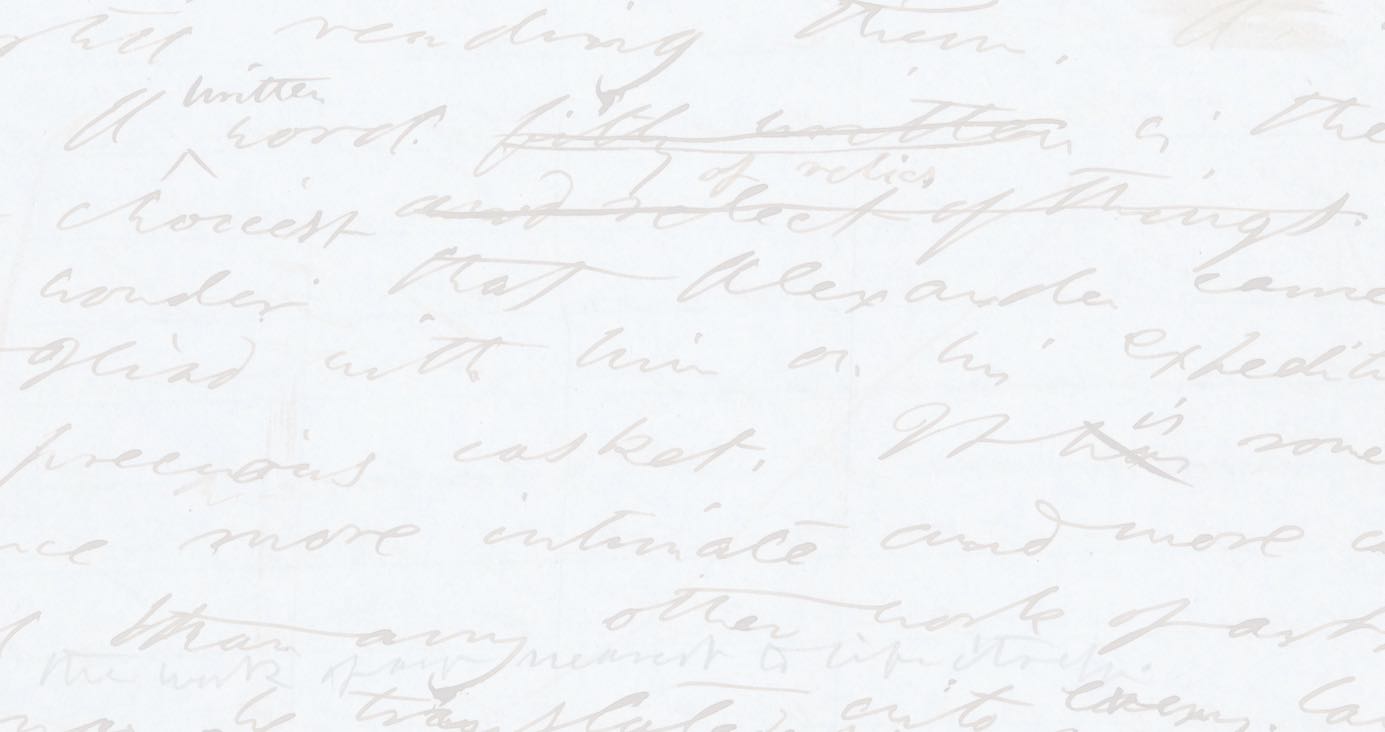 still reading them. A
A written word fitly written is the
choicest and select of things. of relics
wonder that Alexander came
Iliad with him on his expediti
precious casket. It was is some
nce more intimate and more
than any other work of art
the work of art nearest to life itself.
may be translated into every